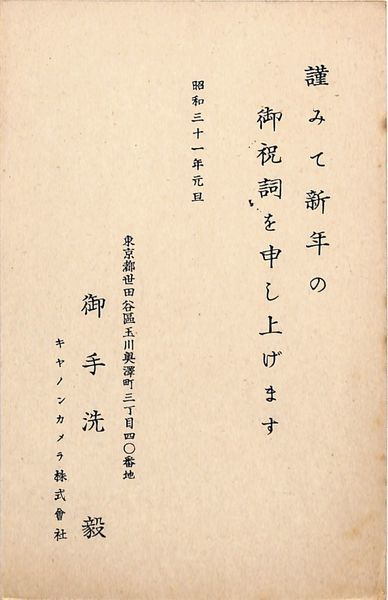 謹みて新年の
御祝詞を申し上げます
昭和三十一年元旦
東京都世田谷區玉川奥澤町三丁目四〇番地
御手洗 毅
キヤノンカメラ株式會社